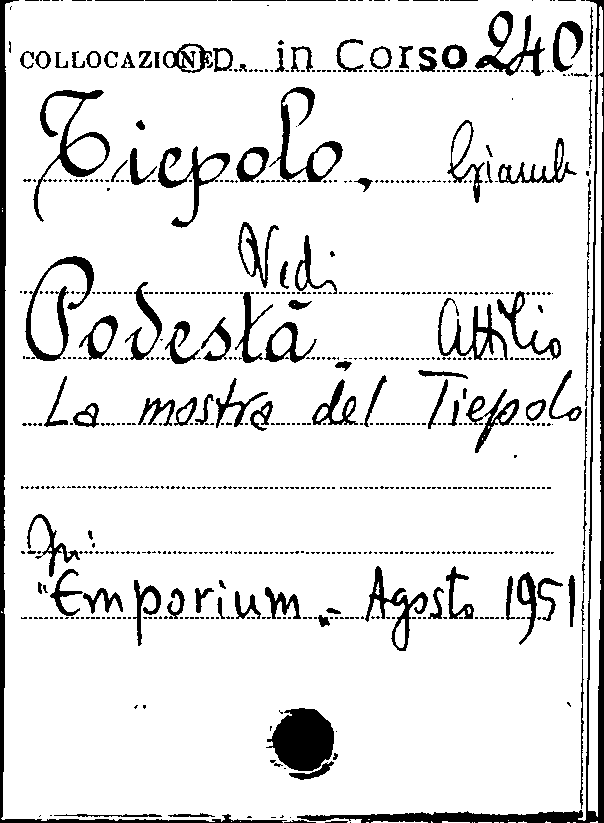 COLLOCAZIONE Op. in Corso 240
Tiepolo, Giamb
Vedi
Podestà Attilio
La mostra del Tiepolo
In:
"Emporium„ - Agosto 1951